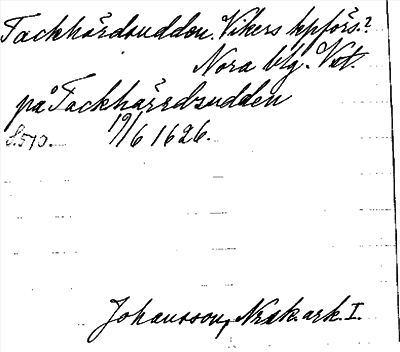 Tackhärdsudden. Vikers kpförs.?
Nora blg. Vstl.
på Tackhärrdzudden
S. 510. 19/6 1626.
Johansson, Nrak. ark. I.